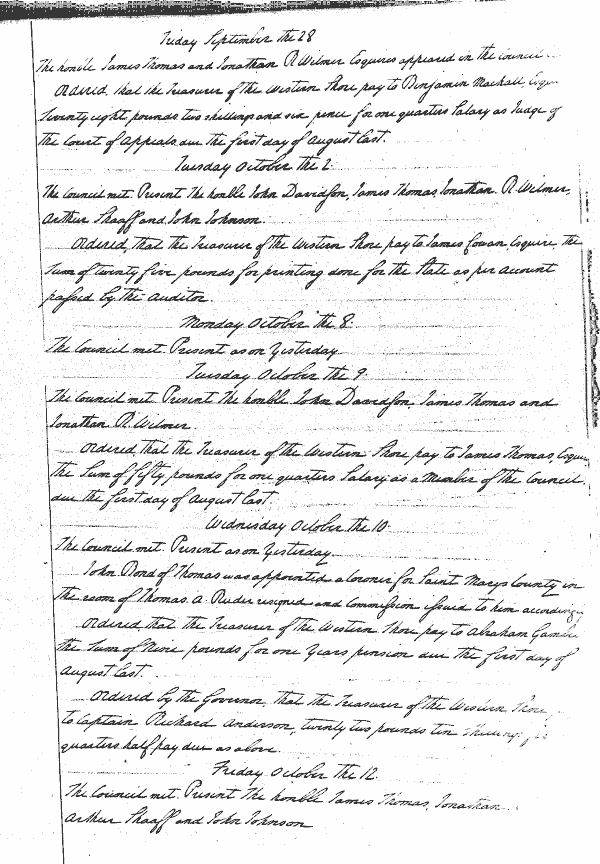 Friday September the 28
The honble James Thomas and Jonathan R. Wilmer Esquires appeared in the council
Ordered, that the Treasurer of the Western Shore pay to Benjamin Mackall, Esqr
Seventy eight pounds two shillings and six pence for one quarters Salary as Judge of
the Court of Appeals due the first day of August last.
Tuesday October the 2.
The Council met. Present The honble John Davidson, James Thomas, Jonathan R. Wilmer,
Arthur Shaaff and John Johnson.
Ordered, that the Treasurer of the Western Shore pay to James Cowan, Esquire, the
Sum of twenty five pounds for printing done for the State as per account
passed by the auditor.
Monday October the 8.
The Council met. Present as on Yesterday
Tuesday October the 9.
The Council met. Present The honble John Davidson, James Thomas and
Jonathan R. Wilmer.
Ordered, that the Treasurer of the Western Shore pay to James Thomas, Esquire
the Sum of fifty pounds for one quarters Salary as a Member of the Council
due the first day of August last.
Wednesday October the 10
The Council met. Present as on Yesterday.
John Bond of Thomas was appointed a Coroner for Saint Marys County in
the room of Thomas A. Reeder resigned and Commission issued to him accordingly
Ordered, that the Treasurer of the Western Shore pay to Abraham Gamble
the Sum of Nine pounds for one Years pension due the first day of
August last.
Ordered by the Governor, that the Treasurer of the Western Shore
to Captain Richard Anderson, twenty two pounds ten Shillings for
quarters half pay due as above.
Friday October the 12
The Council met. Present The honble James Thomas, Jonathan
Arthur Shaaff and John Johnson